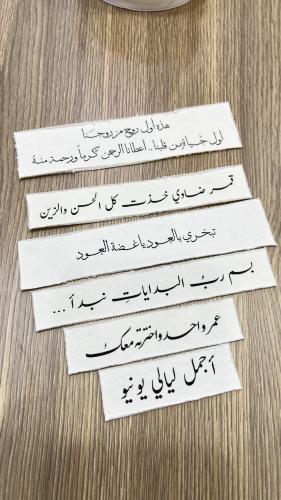 هذه اول روح من روحنا
اول حياة من قلبنا.. أعطانا الرحمن كرماً ورحمة منه
قمر ضاوي خذت كل الحسن والزين
تبختري بالعود يا غضة العود
بسم ربُ البداياتِ نبدأ ...
عمر واحد واخترته معك
أجمل ليالي يونيو